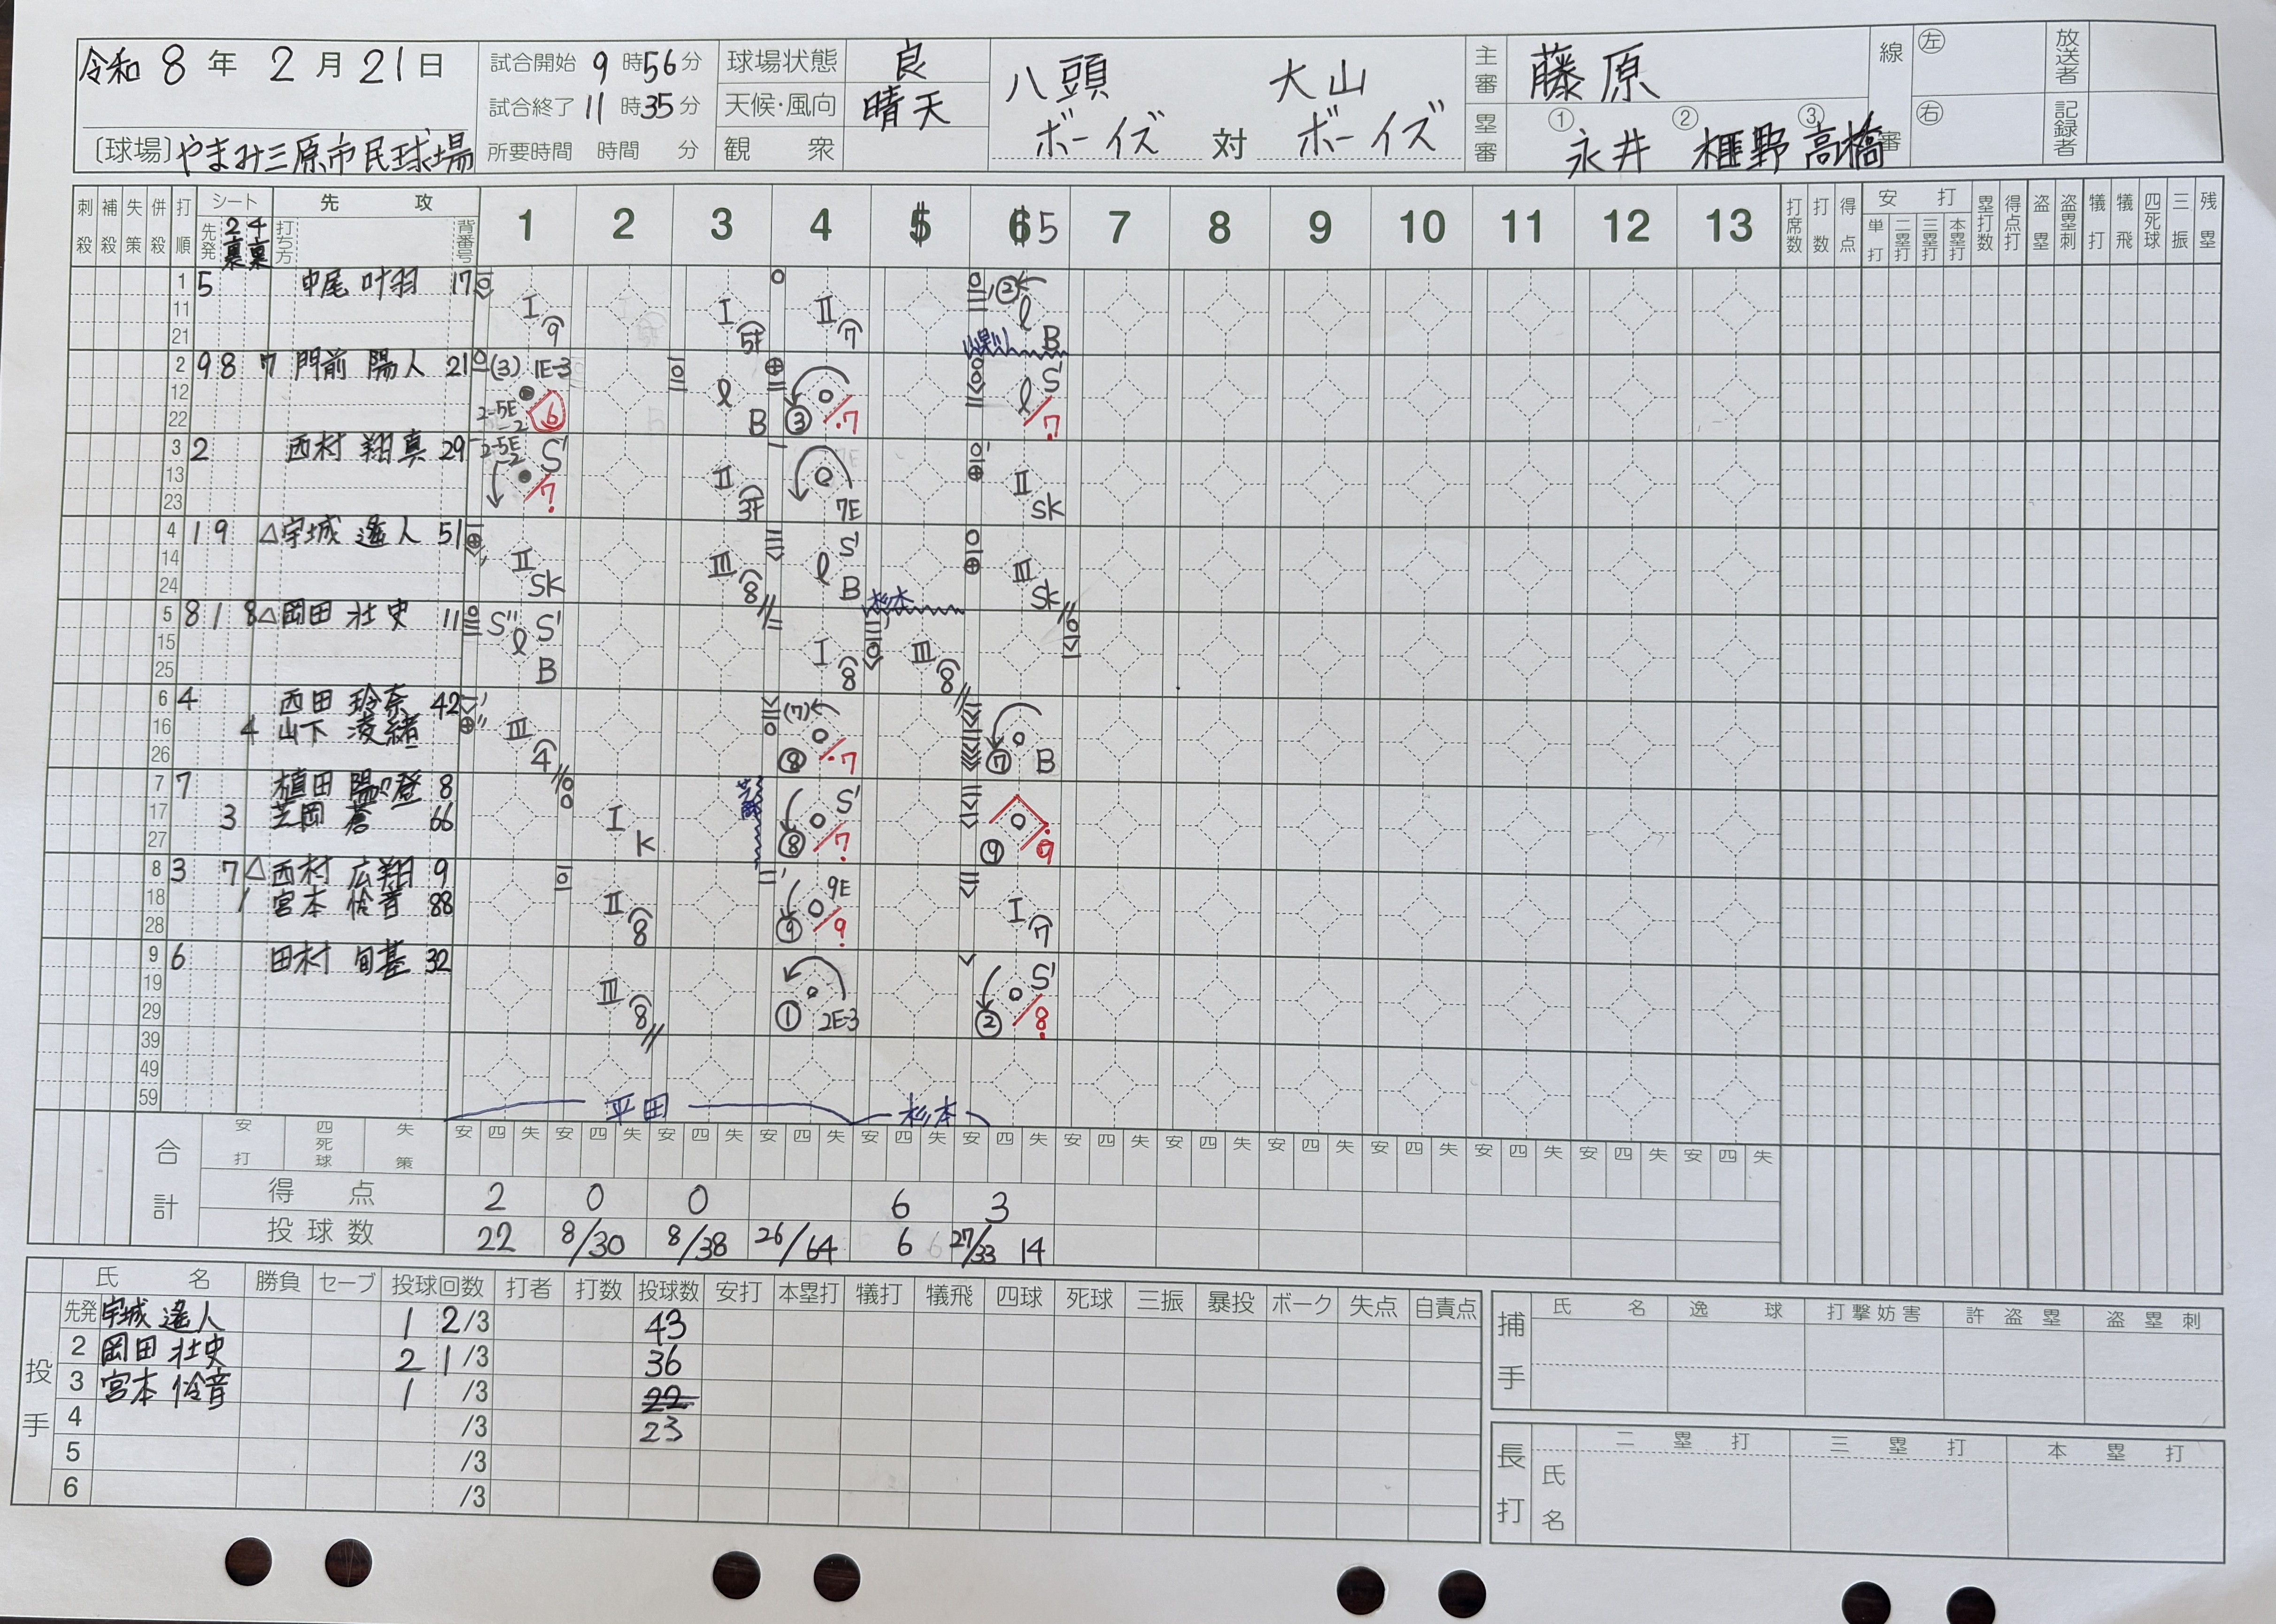 令和 8 年 2 月 21 日
試合開始 9 時 56 分
試合終了 11 時 35 分
所要時間 時間 分
〔球場〕やまみ三原市民球場
球場状態 良
天候・風向 晴天
観衆
八頭ボーイズ 対 大山ボーイズ
主審 藤原
塁審 ① 永井 ② 榧野 ③ 高橋
線審 左 右
放送者
記録者
刺殺 補殺 失策 併殺 打順 シート 先発 2裏 4裏 打ち方 先攻 背番号 1 2 3 4 5 6 5 7 8 9 10 11 12 13 打席数 打数 得点 安打 単打 二塁打 三塁打 本塁打 塁打数 得点打 盗塁 盗塁刺 犠打 犠飛 四死球 三振 残塁
1 11 21 5 中尾 叶羽 17 I 9 I 5F II 7 ② l B
2 12 22 9 8 7 門前 陽人 21 (3) 1E-3 2-5E-2 6 l B ③ 7 l S' 7
3 13 23 2 西村 翔真 29 2-5E-2 S' 7 II 3F 7E II SK
4 14 24 1 9 △宇城 遙人 51 II SK III 8 l S' B III SK
5 15 25 8 1 8 △岡田 壮史 11 S'' S' l B I 8 杉本 III 8
6 16 26 4 西田 玲奈 42 III 4 (7) ⑧ 7 ⑦ B
4 山下 凌緒
7 17 27 7 植田 陽々登 8 I K ⑧ S' 7 ⑨ 9
3 芝岡 蒼 66
8 18 28 3 7 △西村 広翔 9 II 8 ⑨ 9E 9 I 7
1 宮本 怜音 88
9 19 29 6 田村 旬基 32 III 8 ① 2E-3 ② S' 8
39
49
59
平田 杉本
合計 安打 四死球 失策 安 四 失 安 四 失 安 四 失 安 四 失 安 四 失 安 四 失 安 四 失 安 四 失 安 四 失 安 四 失 安 四 失 安 四 失 安 四 失
得点 2 0 0 6 3
投球数 22 8/30 8/38 26/64 6 27/33 14
投手 氏名 勝負 セーブ 投球回数 打者 打数 投球数 安打 本塁打 犠打 犠飛 四球 死球 三振 暴投 ボーク 失点 自責点
先発 宇城 遙人 1 2/3 43
2 岡田 壮史 2 1/3 36
3 宮本 怜音 1 /3 22
4 /3 23
5 /3
6 /3
捕手 氏名 逸球 打撃妨害 許盗塁 盗塁刺
長打 氏名 二塁打 三塁打 本塁打